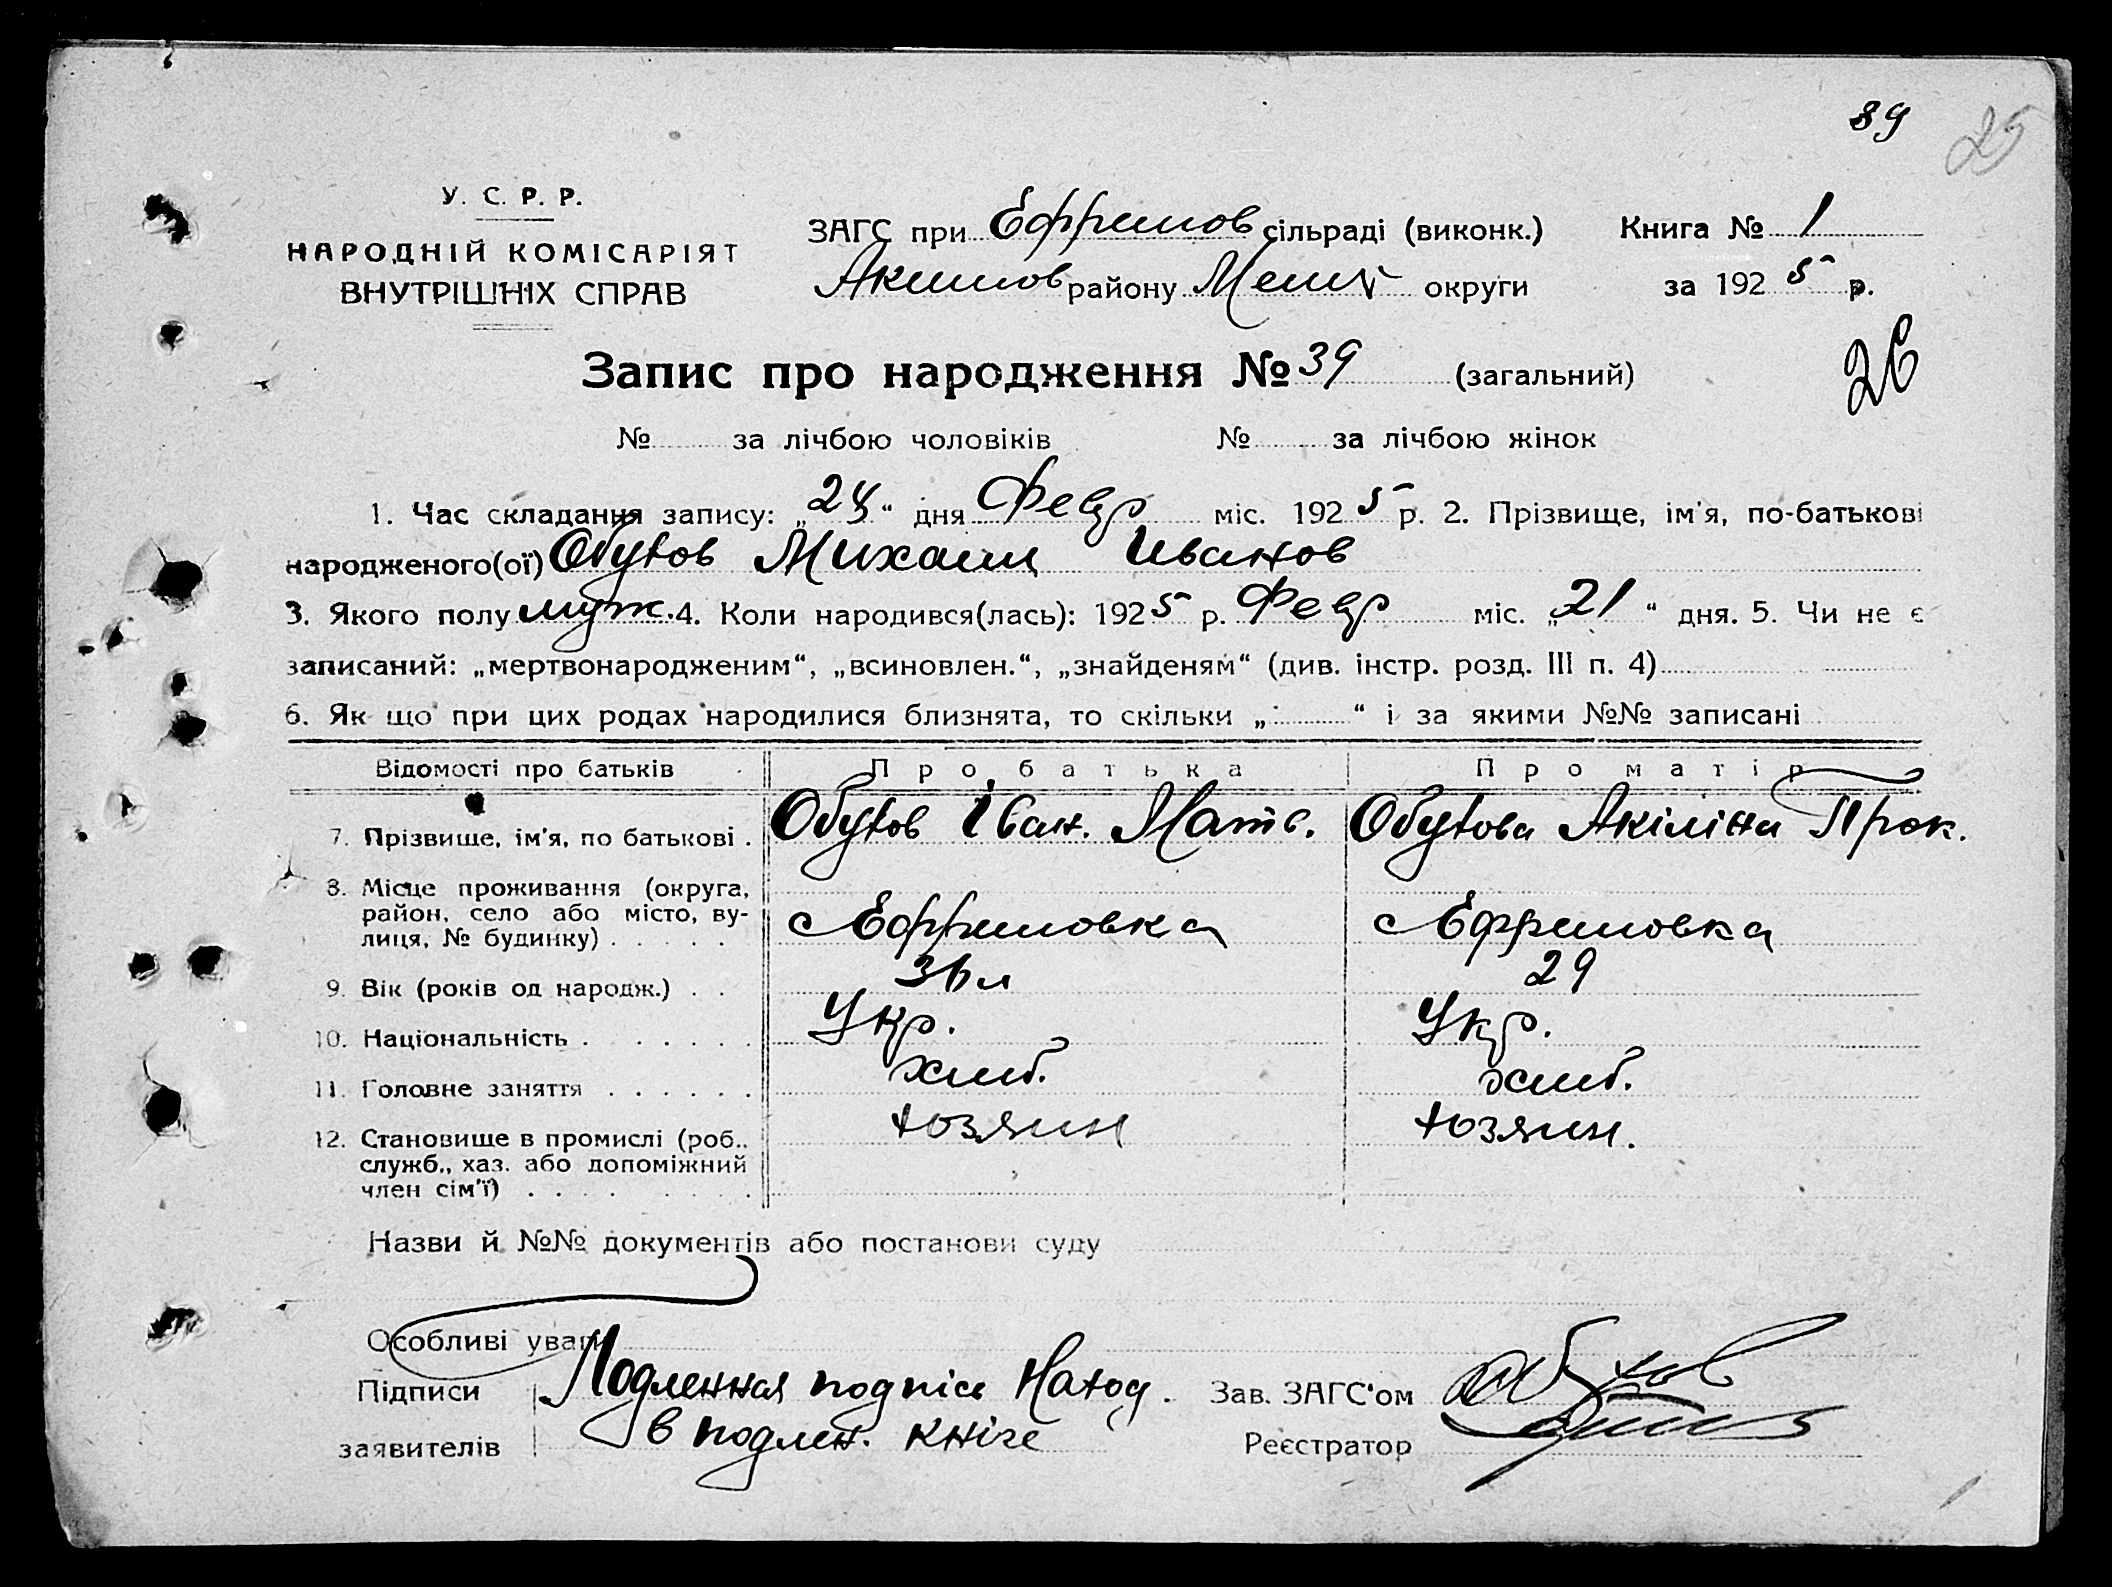 39
25
У. С. Р. Р.
НАРОДНІЙ КОМІСАРІЯТ
ВНУТРІШНІХ СПРАВ
ЗАГС при Ефримов сільраді (виконк.) Книга № 1
Акимов району Меліт округи за 192 5 р.
Запис про народження № 39 (загальний)
26
№ за лічбою чоловіків № за лічбою жінок
1. Час складання запису: „24“ дня Февр міс. 192 5 р. 2. Прізвище, ім'я, по-батькові
народженого(ої) Обутов Михаил Иванов
3. Якого полу муж. 4. Коли народився(лась): 192 5 р. Февр міс. „21“ дня. 5. Чи не є
записаний: „мертвонародженим“, „всиновлен.“, „знайденям“ (див. інстр. розд. III п. 4)
6. Як що при цих родах народилися близнята, то скільки „ “ і за якими №№ записані
Відомості про батьків Про батька Про матір
7. Прізвище, ім'я, по батькові . Обутов Іван. Матв. Обутова Акіліна Прок.
8. Місце проживання (округа,
район, село або місто, ву-
лиця, № будинку) . . . . . с Ефримовка с Ефримовка
9. Вік (років од народж.) . . 36 л 29
10. Національність . . . . . . Укр. Укр.
11. Головне заняття . . . . . . хлиб. хлиб.
12. Становище в промислі (роб., хозяин хозяин.
служб., хаз. або допоміжний
член сім'ї) . . . . . .
Назви й №№ документів або постанови суду
Особливі уваги
Підписи Подленная подпісь Наход. Зав. ЗАГС'ом Обутов
заявителів в подлен. кніге Реєстратор